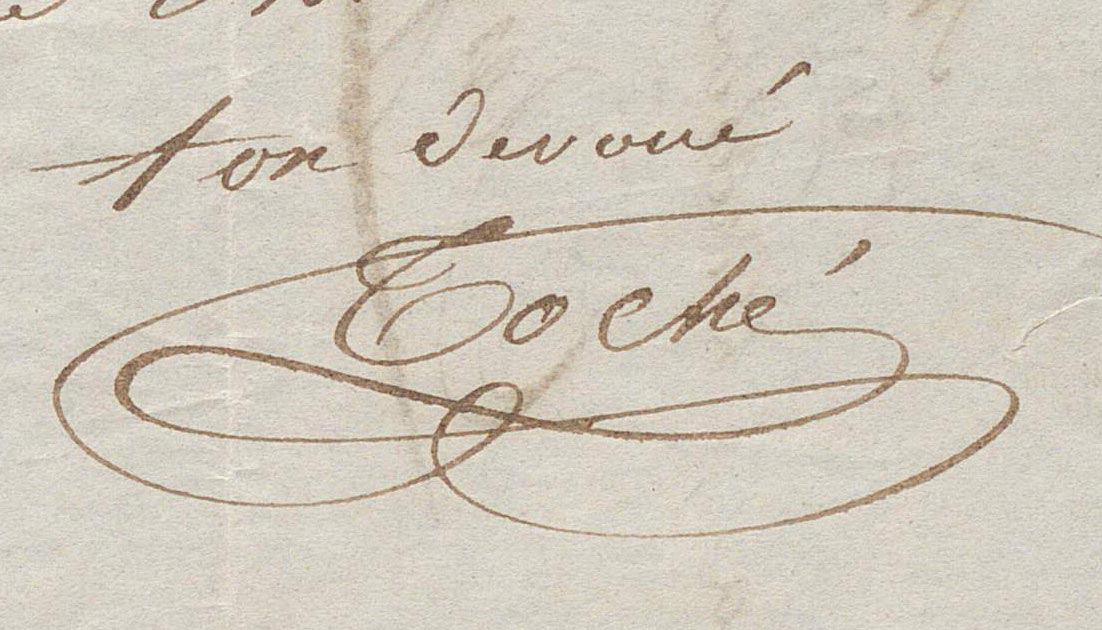 ton devoué
Toché